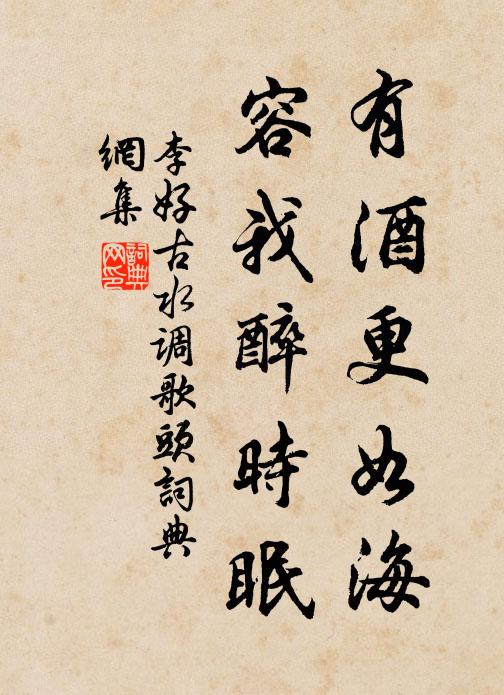 有酒更如海
容我醉時眠
李好古水调歌頭詞典
網集
詞典网印